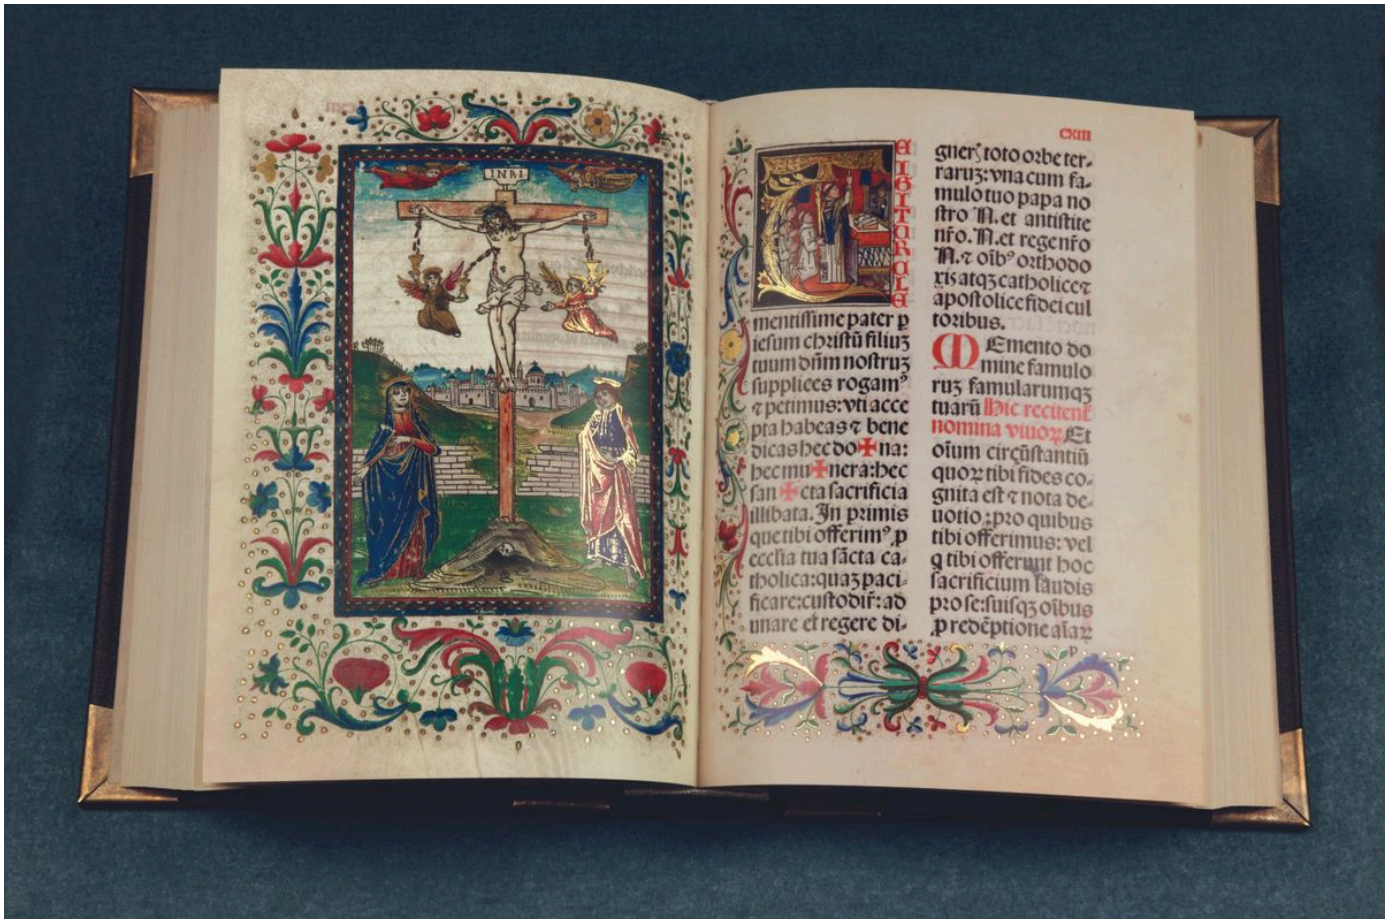 INRI
cxiii
T
EIGITURCLE
mentissime pater ꝑ
iesum christū filiuȝ
tuum dn̄m nostruȝ
supplices rogamꝰ
⁊ petimus: vti acce
pta habeas ⁊ bene
dicas hec do✠na:
hec mu✠nera: hec
san✠cta sacrificia
illibata. In primis
que tibi offerimꝰ ꝓ
ecclīa tua sācta ca-
tholica: quaȝ paci-
ficare: custodir̄: ad
unare et regere di-
gnerꝭ toto orbe ter-
raruȝ: vna cum fa-
mulo tuo papa no
stro N. et antistite
nr̄o. N. et rege nr̄o
N. ⁊ oībꝰ orthodo
xis atqȝ catholice ⁊
apostolice fidei cul
toribus.
MEmento do
mine famulo
ruȝ famularumqȝ
tuarū Hic reciten̄t
nomina viuoꝝ Et
oīum circūstantiū
quoꝝ tibi fides co-
gnita est ⁊ nota de-
uotio: pro quibus
tibi offerimus: vel
q̄ tibi offerunt hoc
sacrificium laudis
pro se: suisqȝ oībus
ꝓ redēptione aīaꝝ
p